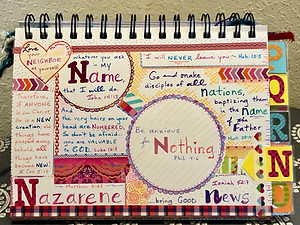 Love
your
NEIGHBOR
as
yourself
whatever you ask
in MY
Name,
that I will do.
John 14:13
I will NEVER leave you ~ Heb. 13:5
Go and make
disciples of all
Nations,
baptizing them
in the Name
of the
Father
Therefore,
if ANYONE
is in Christ
he is a NEW
creation;
passed
all
things have
become NEW
II Cor 5:17
the very hairs on your
head are NUMBERED.
So don't be afraid;
you are VALUABLE
to GOD. Luke 12:7
Be anxious
for
Nothing
Phil 4:6
~ Matthew 2:23
Nazarene
Isaiah 52:7
bring GOOD
News
P
Q
R
N
D